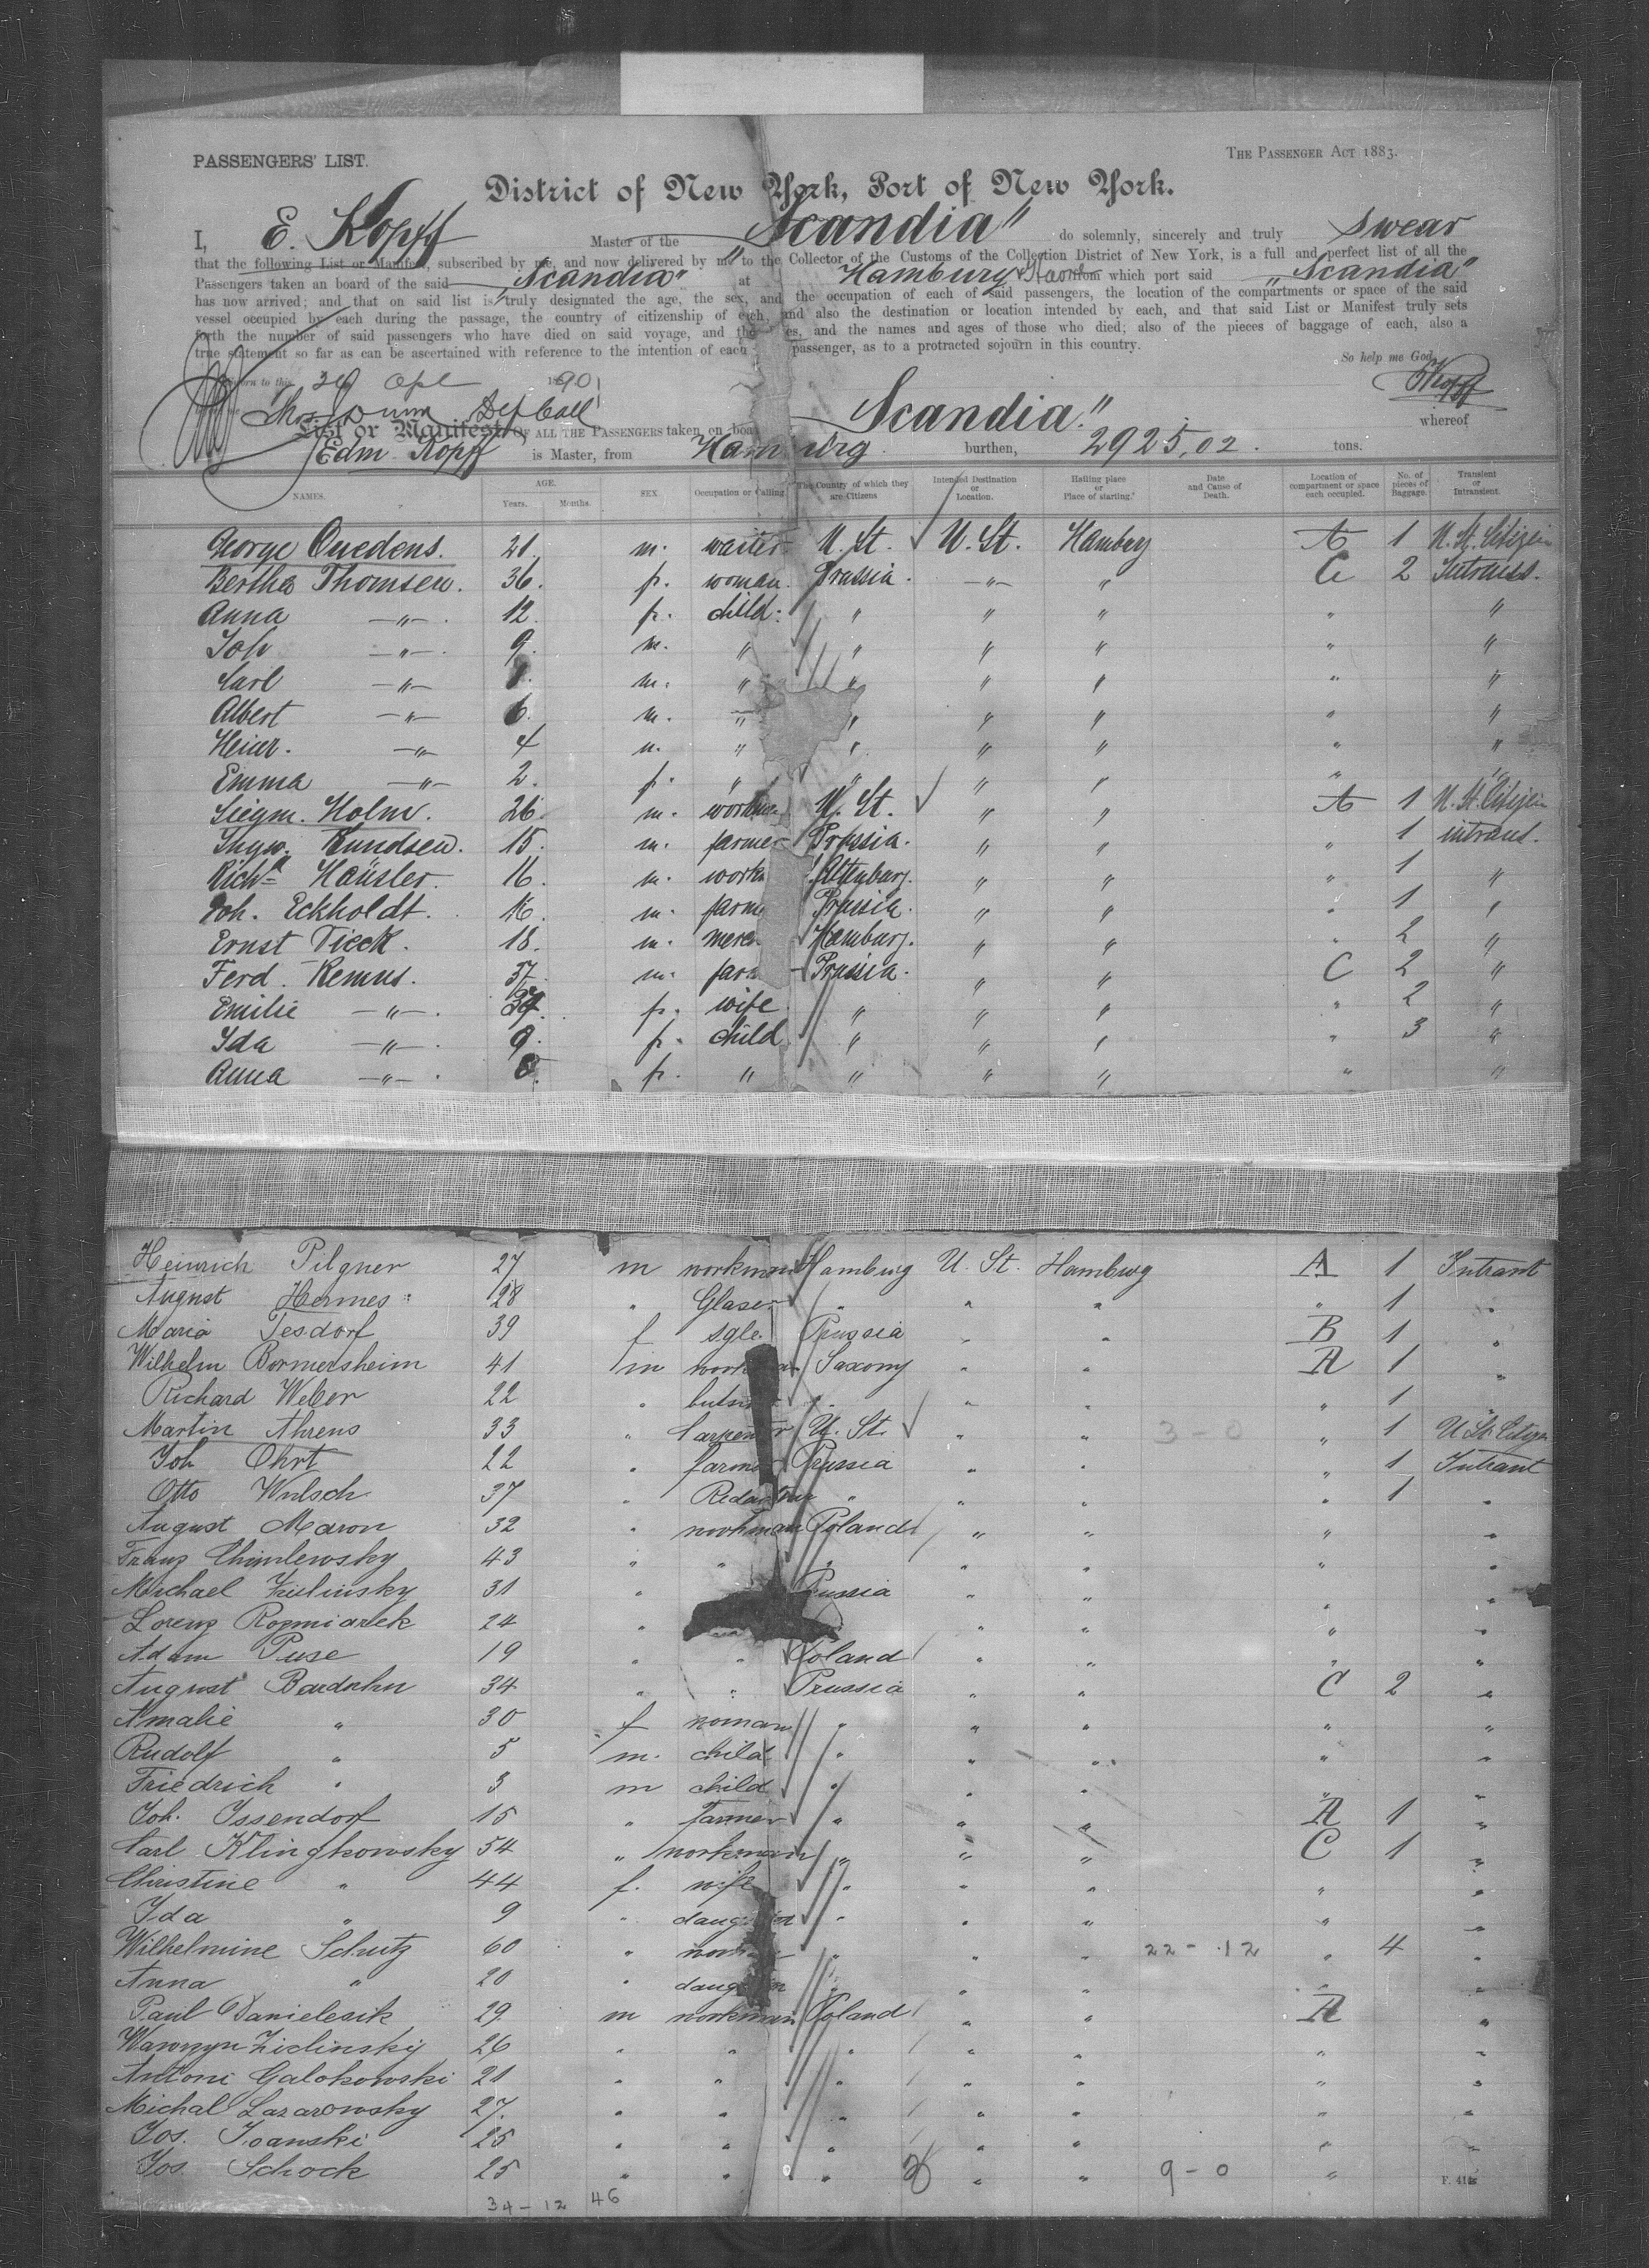 PASSENGERS' LIST.
THE PASSENGER ACT 1883.
District of New York, Port of New York.
I, E. Kopff Master of the "Scandia" do solemnly, sincerely and truly swear
that the following List or Manifest, subscribed by me, and now delivered by me to the Collector of the Customs of the Collection District of New York, is a full and perfect list of all the
Passengers taken on board of the said "Scandia" at Hamburg & Havre from which port said "Scandia"
has now arrived; and that on said list is truly designated the age, the sex, and the occupation of each of said passengers, the location of the compartments or space of the said
vessel occupied by each during the passage, the country of citizenship of each, and also the destination or location intended by each, and that said List or Manifest truly sets
forth the number of said passengers who have died on said voyage, and the es, and the names and ages of those who died; also of the pieces of baggage of each, also a
true statement so far as can be ascertained with reference to the intention of each passenger, as to a protracted sojourn in this country.
So help me God,
to this 30 Apl 1890 Kopff
Thos Dunn Dep Coll
List or Manifest OF ALL THE PASSENGERS taken on boa "Scandia" whereof
Edm. Kopff is Master, from Hamburg burthen, 2925,02. tons.
NAMES. AGE. Years. Months. SEX Occupation or Calling The Country of which they are Citizens Intended Destination or Location. Hailing place or Place of starting. Date and Cause of Death. Location of compartment or space each occupied. No. of pieces of Baggage. Transient or Intransient.
George Quedens. 21. m. waiter U. St. U. St. Hamburg A 1 U. St. Citizen
Bertha Thomsen. 36. f. woman. Prussia. —"— " C 2 Intranst.
Anna —"— 12. f. child. " " " " "
Joh —"— 9. m. " " " " " "
Carl —"— m. " " " " " "
Albert —"— 6. m. " " " " " "
Heinr. —"— 4 m. " " " " " "
Emma —"— 2. f. " " " " " "
Siegm. Holm. 26. m. workman U. St. " " A 1 U. St. Citizen
Kundsen. 15. m. farmer Prussia. " " " 1 intranst.
Richd. Häusler. 16. m. workm Altenburg. " " " 1 "
Joh. Eckholdt. 16. m. farme Prussia. " " " 1 "
Ernst Tieck. 18. m. merch Hamburg. " " " 2 "
Ferd. Remus. 37. m. farm Prussia. " " C 2 "
Emilie —"— f. wife " " " " 2 "
Ida —"— 9. f. child " " " " 3 "
Anna —"— f. " " " " " "
Heinrich Pilgner 27 m workman Hamburg U. St. Hamburg A 1 Intrant
August Hermes 28 " Glaser " " " " 1 "
Maria Tesdorf 39 f sgle. Prussia " " B 1 "
Wilhelm Bormersheim 41 m workman Saxony " " A 1 "
Richard Weber 22 " " " " " 1 "
Martin Ahrens 33 " Carpenter U. St. " " 3-0 " 1 U St. Citizen
Joh Ohrt 22 " farmer Prussia " " " 1 Intrant
Otto Wulsch 37 " Redakteur " " " " 1 "
August Maron 32 " workman Poland " " " "
Franz Chimlewsky 43 " " " " " " "
Michael Zielinsky 31 " Prussia " " " "
Lorenz Rozmiarek 24 " " " " "
Adam Puse 19 " " Poland " " " "
August Bardahn 34 " " Prussia " " C 2 "
Amalie " 30 f woman " " " " "
Rudolf " 5 m. child " " " " "
Friedrich " 3 m child " " " " "
Joh. Issendorf 15 " Farmer " " " A 1 "
Carl Klingkowsky 54 " workman " " " C 1 "
Christine " 44 f. wife " " " " "
Ida " 9 " daughter " " " " "
Wilhelmine Schutz 60 " " " " 22-12 " 4 "
Anna " 20 " daughter " " " " "
Paul Danielesik 29. m workman Poland " " A "
Wawrzyn Zielinsky 26 " " " " " " "
Antoni Galokowski 21 " " " " " " "
Michal Lazarowsky 27. " " " " " " "
Jos. Joanski 25 " " " " " " "
Jos. Schock 25 " " " " " 9-0 "
34-12 46